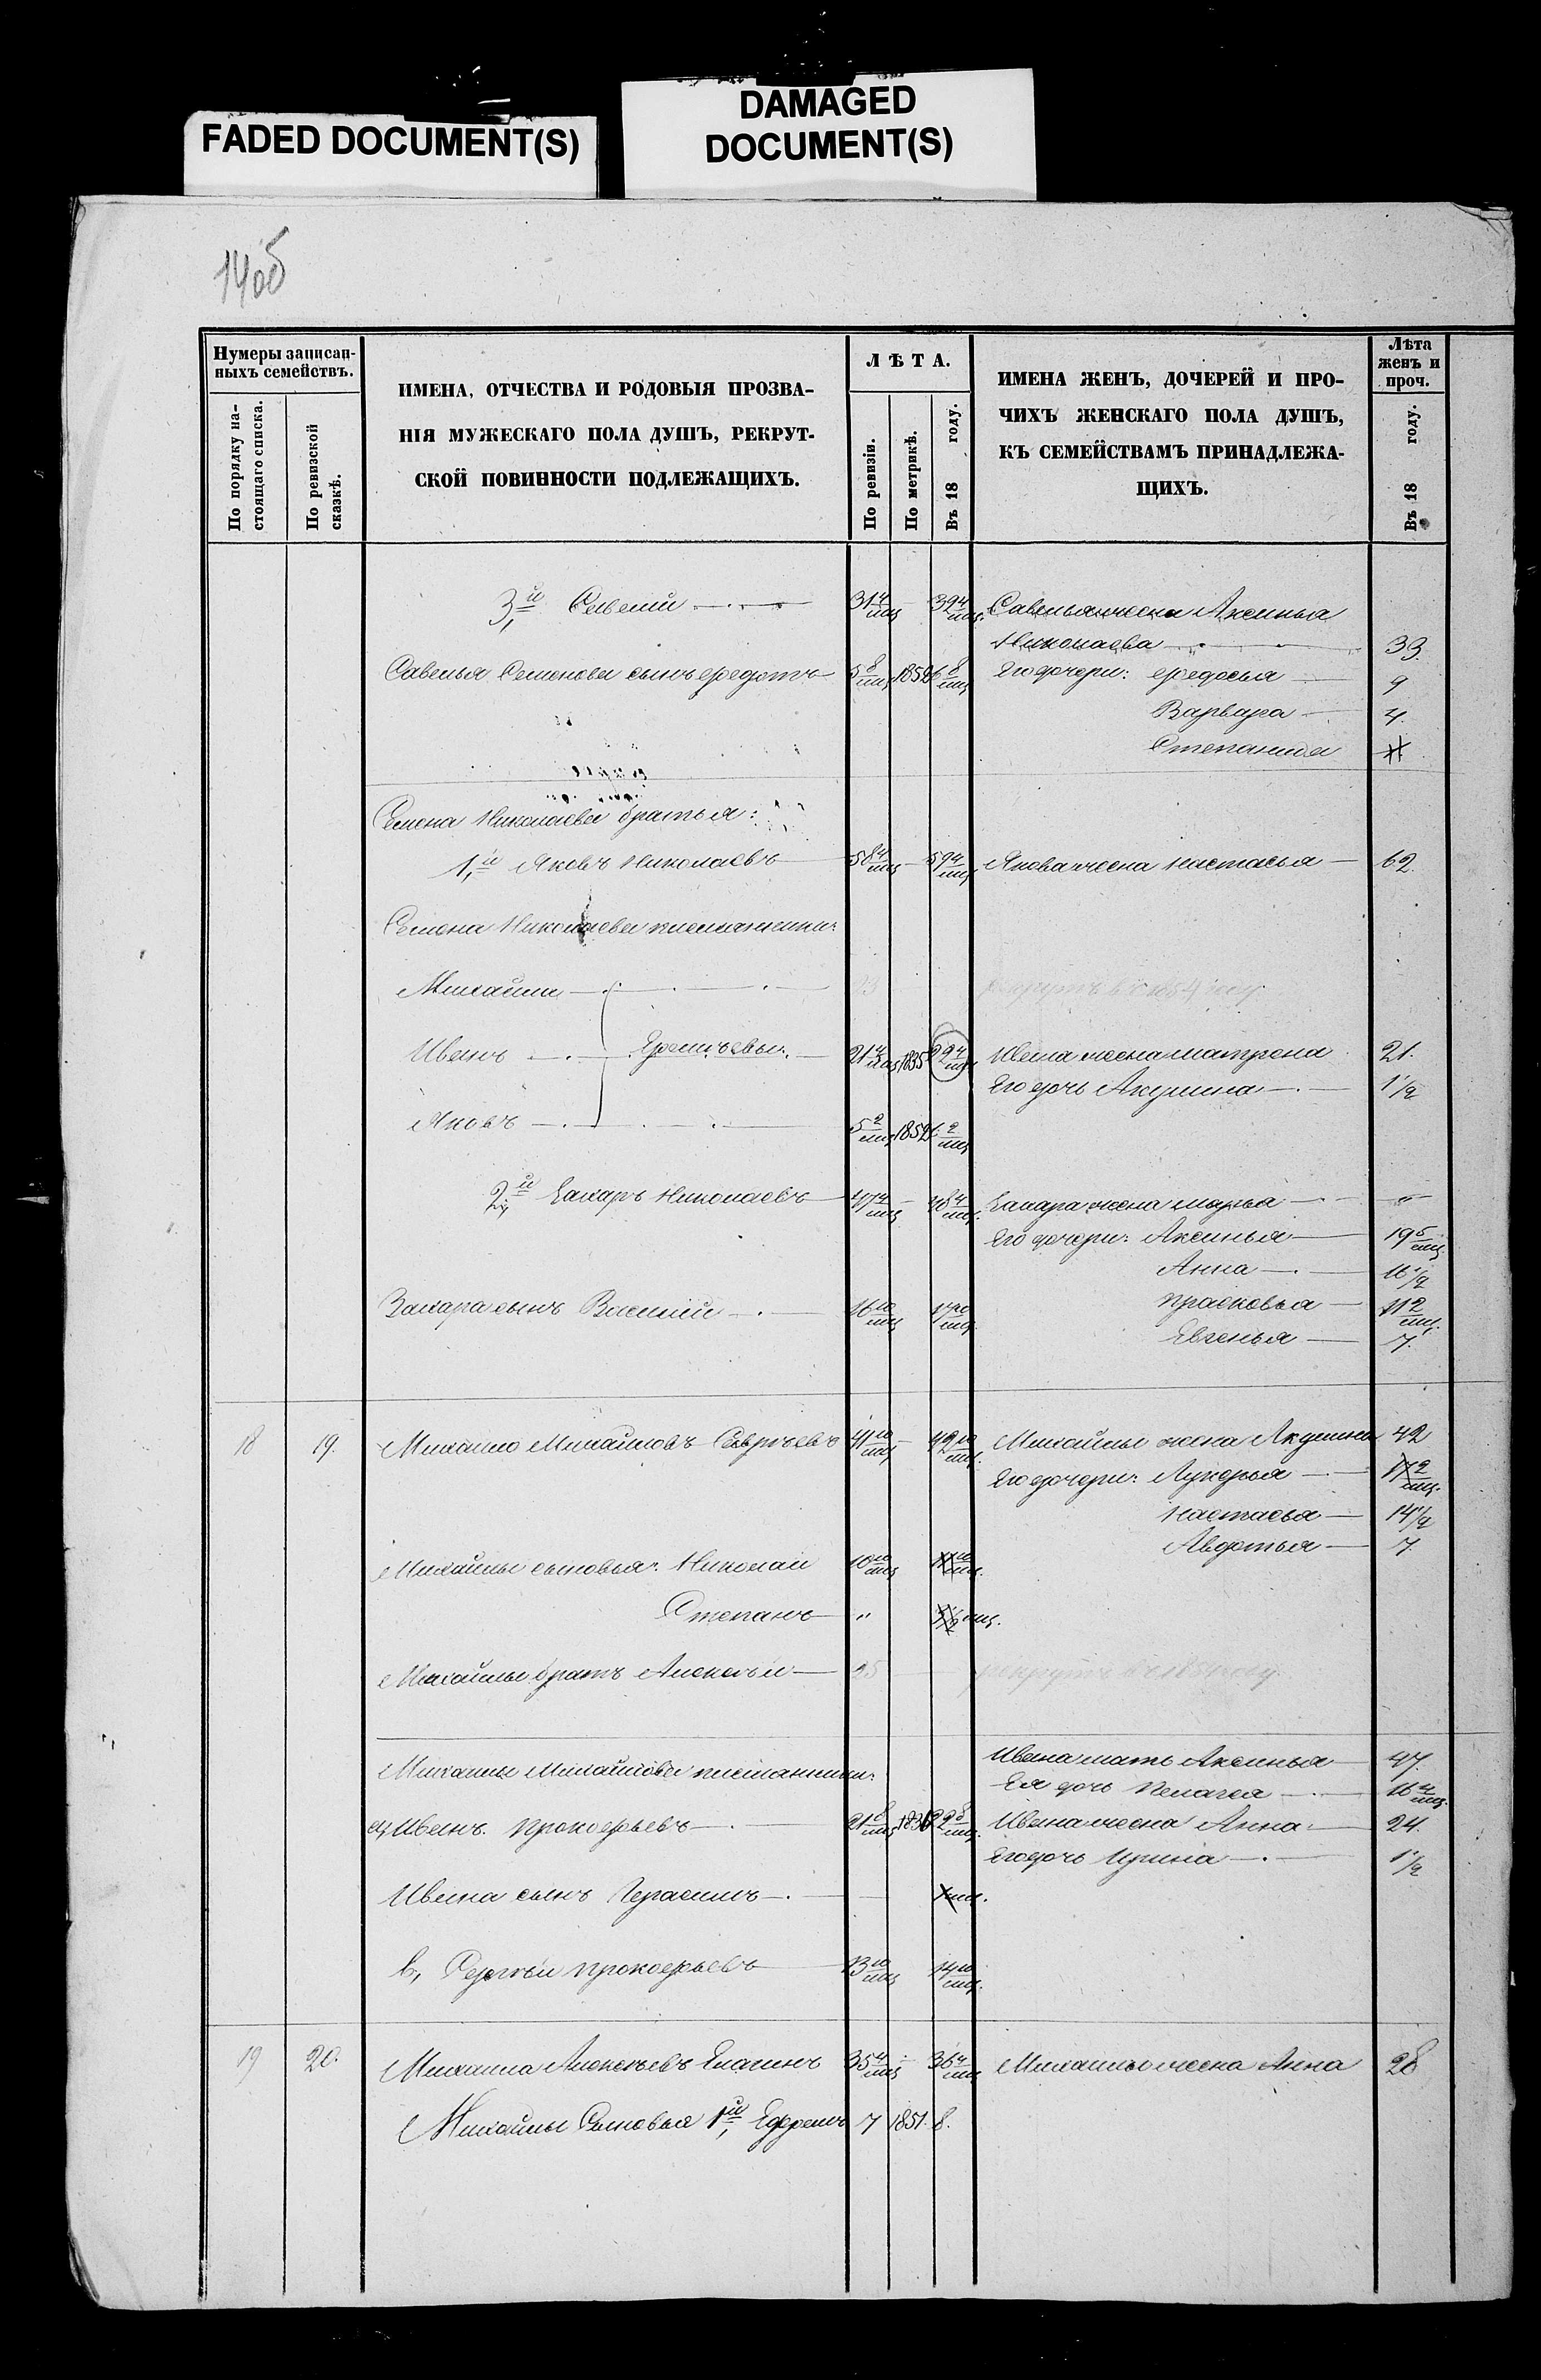 FADED DOCUMENT(S)
DAMAGED
DOCUMENT(S)
140об
Нумеры записан-
ныхъ семействъ.
По порядку на-
стоящаго списка.
По ревизской
сказкѣ.
ИМЕНА, ОТЧЕСТВА И РОДОВЫЯ ПРОЗВА-
НІЯ МУЖЕСКАГО ПОЛА ДУШЪ, РЕКРУТ-
СКОЙ ПОВИННОСТИ ПОДЛЕЖАЩИХЪ.
ЛѢТА.
По ревизіи.
По метрикѣ.
Въ 18 году.
ИМЕНА ЖЕНЪ, ДОЧЕРЕЙ И ПРО-
ЧИХЪ ЖЕНСКАГО ПОЛА ДУШЪ,
КЪ СЕМЕЙСТВАМЪ ПРИНАДЛЕЖА-
ЩИХЪ.
Лѣта
женъ и
проч.
Въ 18 году.
3,й Савелій 31 4/мц 32 4/мц. Савелья жена Аксинья
Николаева 33.
Савелья Семенова сынъ Федотъ 5 8/мц 1852 6 8/мц Его дочери: Федосья 9
Варвара 4.
Степанида
Семена Николаева братья:
1,й Яковъ Николаевъ 58 4/мц 59 4/мц Якова жена Настасья 62.
Семена Николаева племянники:
Михаила 23 рекрутъ въ 1854 году.
Иванъ Фомичевы 21 4/мц 1835 22 4/мц Ивана жена Матрена 21.
Его дочь Акулина 1 1/2
Яковъ 5 2/мц 1852 6 2/мц
2,й Захаръ Николаевъ 47 4/мц 48 4/мц. Захара жена Марья "
Его дочери: Аксинья 19 5/мц.
Анна 16 1/2
Захара сынъ Василій 16 10/мц 17 10/мц. Прасковья 11 2/мц.
Евгенья 7.
18 19. Михайло Михайловъ 41 10/мц 42 10/мц. Михайлы жена Акулина 42
Его дочери: Лукерья 17 2/мц.
Настасья 14 1/2
Авдотья 7.
Михайлы сыновья: Николай 10 10/мц 11 10/мц.
Степанъ " мц.
Михайлы братъ Алексѣй 25 рекрутъ въ 1854 году.
Ивана мать Аксинья 47.
Михайлы Михайлова племянники:
Ея дочь Пелагея 16 4/мц.
а, Иванъ Прокофьевъ 21 8/мц 1836 22 8/мц. Ивана жена Анна 24.
Его дочь Ирина 1 1/2
Ивана сынъ Герасимъ мц.
в, Сергѣй Прокофьевъ 13 10/мц 14 10/мц.
19 20. Михаила Алексѣевъ Елагинъ 35 4/мц 36 4/мц Михайлы жена Анна 28
Михайлы Сыновья 1,й Ефремъ 7 1851. 8.